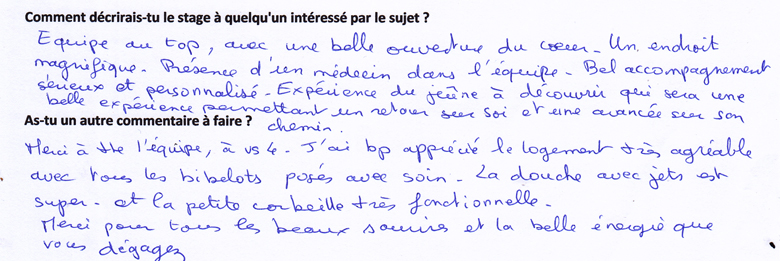 Comment décrirais-tu le stage à quelqu'un intéressé par le sujet ?
Equipe au top, avec une belle ouverture du coeur - Un endroit
magnifique - Présence d'un médecin dans l'équipe - Bel accompagnement
sérieux et personnalisé - Expérience du jeûne à découvrir qui sera une
belle expérience permettant un retour sur soi et une avancée sur son
As-tu un autre commentaire à faire ? chemin.
Merci à tte l'équipe, à vs 4 - J'ai bp apprécié le logement très agréable
avec tous les bibelots posés avec soin - La douche avec jets est
super - et la petite corbeille très fonctionnelle -
Merci pour tous les beaux sourires et la belle énergie que
vous dégagez